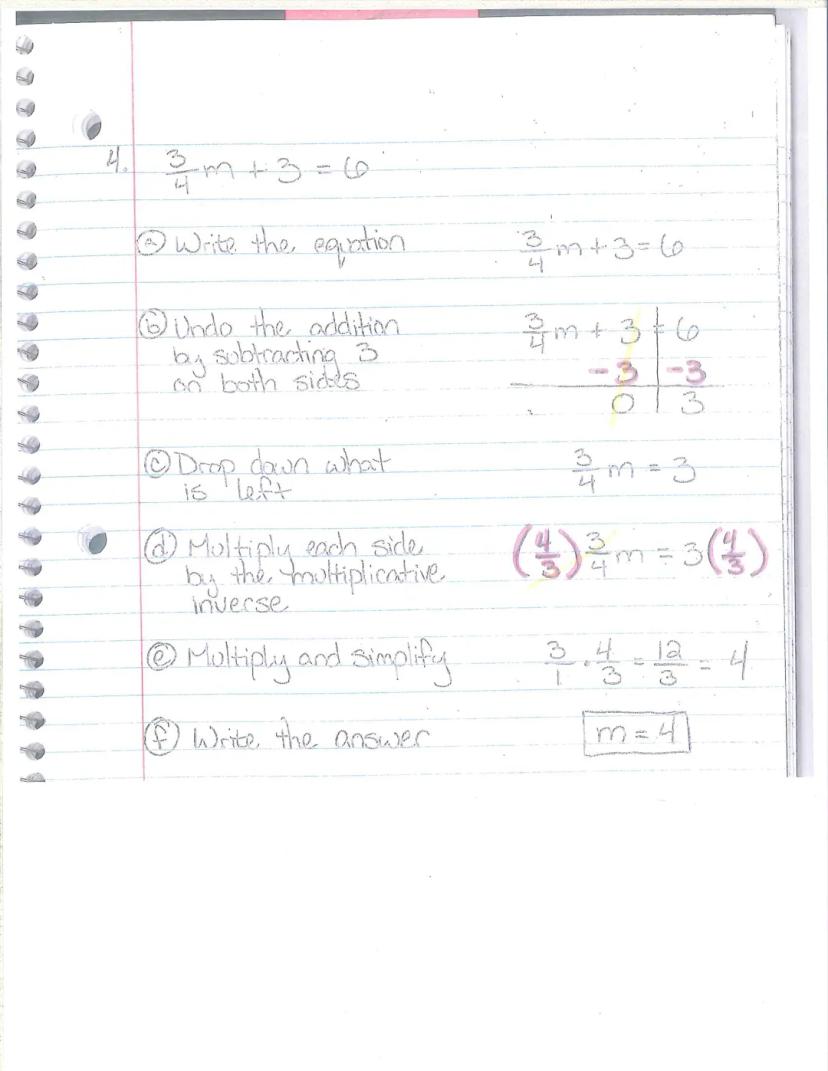 4. 3/4 m + 3 = 6
ⓐ Write the equation 3/4 m + 3 = 6
ⓑ Undo the addition 3/4 m + 3 = 6
by subtracting 3 -3 -3
on both sides 0 3
ⓒ Drop down what 3/4 m = 3
is left
ⓓ Multiply each side (4/3) 3/4 m = 3 (4/3)
by the multiplicative
inverse
ⓔ Multiply and simplify 3/1 · 4/3 = 12/3 = 4
ⓕ Write the answer m = 4